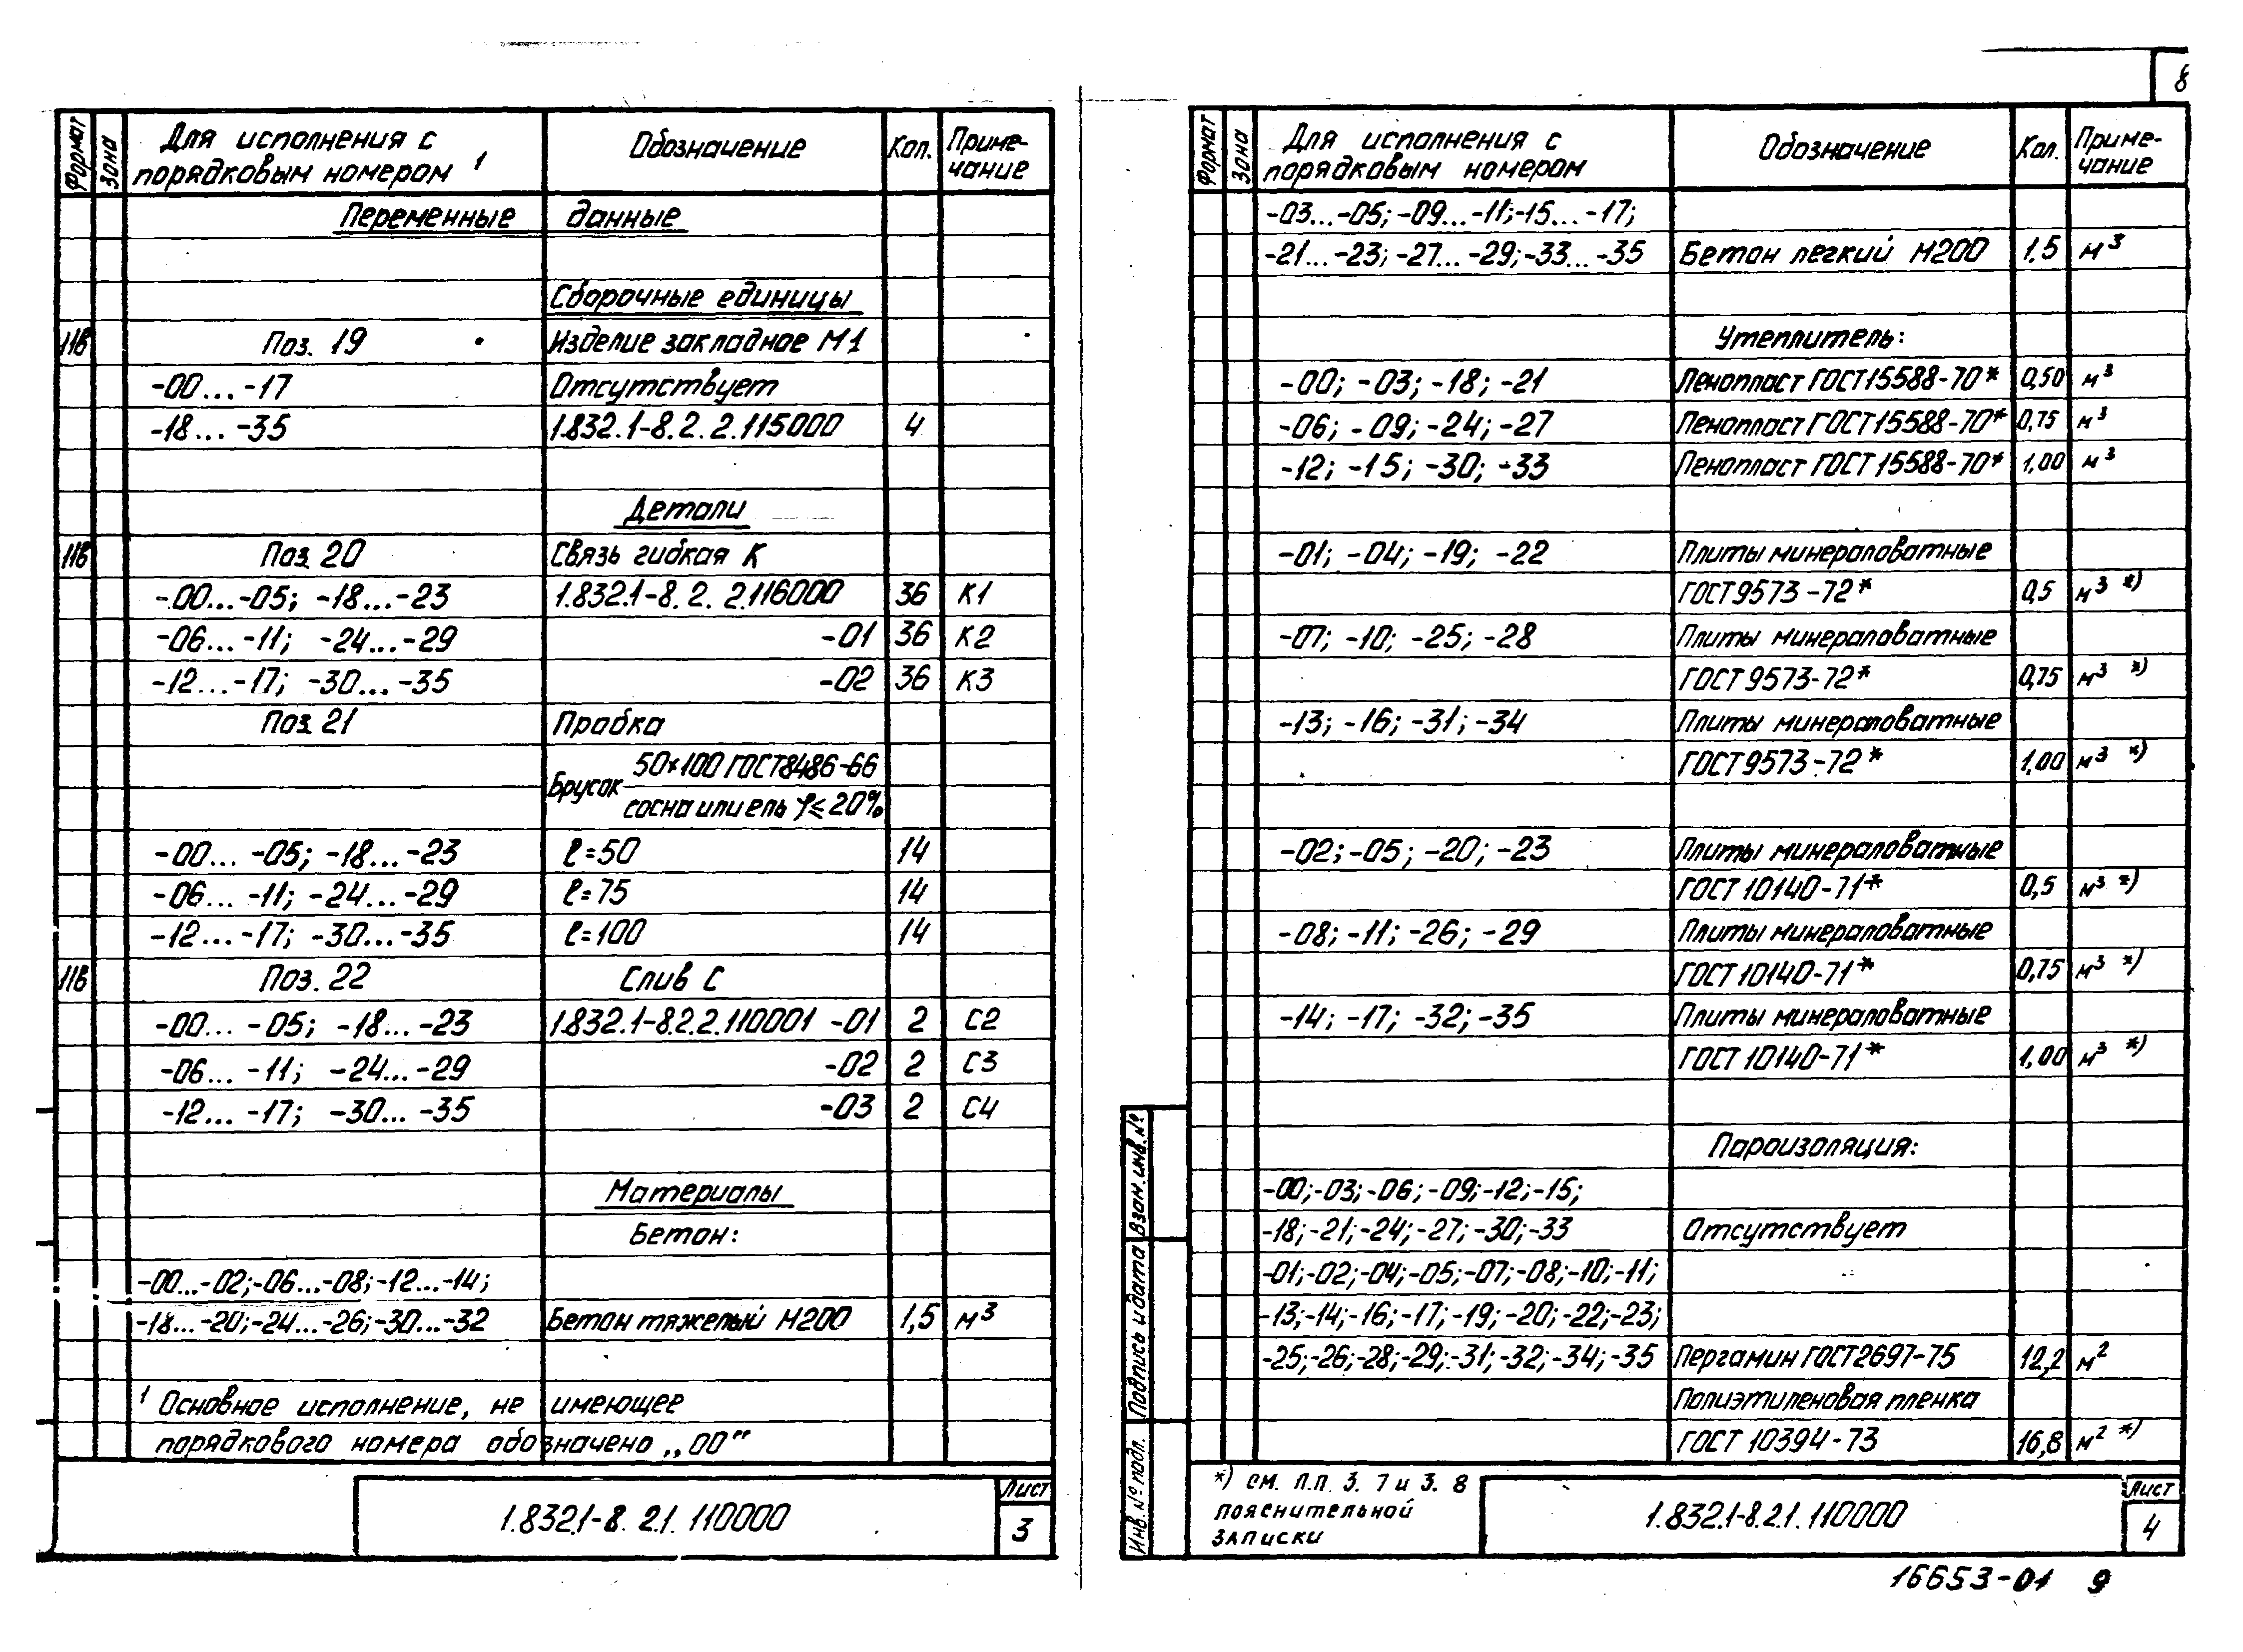 Формат Зона Для исполнения с порядковым номером ¹ Обозначение Кол. Приме-чание
Переменные данные
Сборочные единицы
11в Поз. 19 Изделие закладное М1
-00... -17 Отсутствует
-18... -35 1.832.1-8.2.2.115000 4
Детали
11в Поз. 20 Связь гибкая К
-00...-05; -18...-23 1.832.1-8.2.2.116000 36 К1
-06... -11; -24...-29 -01 36 К2
-12...-17; -30...-35 -02 36 К3
Поз. 21 Пробка
50×100 ГОСТ 8486-66
Брусок
сосна или ель φ≤20%
-00... -05; -18...-23 ℓ=50 14
-06... -11; -24...-29 ℓ=75 14
-12...-17; -30...-35 ℓ=100 14
11в Поз. 22 Слив С
-00... -05; -18...-23 1.832.1-8.2.2.110001 -01 2 С2
-06... -11; -24...-29 -02 2 С3
-12... -17; -30... -35 -03 2 С4
Материалы
Бетон:
-00...-02;-06...-08;-12...-14;
-18...-20;-24...-26;-30...-32 Бетон тяжелый М200 1,5 м³
¹ Основное исполнение, не имеющее
порядкового номера обозначено „00“
1.832.1-8. 2.1. 110000
Лист
3
8
Формат Зона Для исполнения с порядковым номером Обозначение Кол. Приме-чание
-03...-05; -09...-11;-15...-17;
-21...-23; -27...-29;-33...-35 Бетон легкий М200 1.5 м³
Утеплитель:
-00; -03; -18; -21 Пенопласт ГОСТ15588-70* 0,50 м³
-06; -09; -24; -27 Пенопласт ГОСТ15588-70* 0,75 м³
-12; -15; -30; -33 Пенопласт ГОСТ15588-70* 1,00 м³
-01; -04; -19; -22 Плиты минераловатные
ГОСТ 9573-72* 0,5 м³ *)
-07; -10; -25; -28 Плиты минераловатные
ГОСТ 9573-72* 0,75 м³ *)
-13; -16; -31; -34 Плиты минераловатные
ГОСТ 9573-72* 1,00 м³ *)
-02; -05; -20; -23 Плиты минераловатные
ГОСТ 10140-71* 0,5 м³ *)
-08; -11; -26; -29 Плиты минераловатные
ГОСТ 10140-71* 0,75 м³ *)
-14; -17; -32; -35 Плиты минераловатные
ГОСТ 10140-71* 1,00 м³ *)
Пароизоляция:
-00;-03;-06;-09;-12;-15;
-18;-21;-24;-27;-30;-33 Отсутствует
-01;-02;-04;-05;-07;-08;-10;-11;
-13;-14;-16;-17;-19;-20;-22;-23;
-25;-26;-28;-29;-31;-32;-34;-35 Пергамин ГОСТ2697-75 12,2 м²
Полиэтиленовая пленка
ГОСТ 10394-73 16,8 м² *)
Инв.№ подл. Подпись и дата Взам.инв.№
*) см. п.п. 3. 7 и 3. 8
пояснительной
записки
1.832.1-8.2.1. 110000
Лист
4
16653-01 9